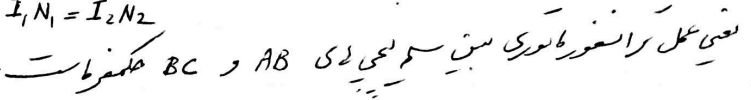 I₁N₁ = I₂N₂
یعنی عمل ترانسفورماتوری بین سیم پیچی های AB و BC حکمفرماست.